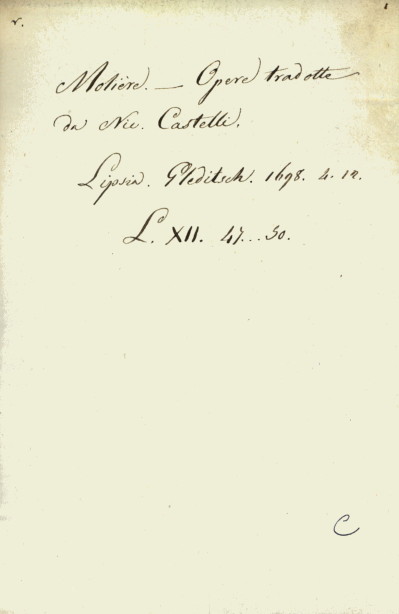 r.
Molière. — Opere tradotte
da Nic. Castelli.
Lipsia. Gleditsch. 1698. 4. 12.
L. XII. 47...50.
C